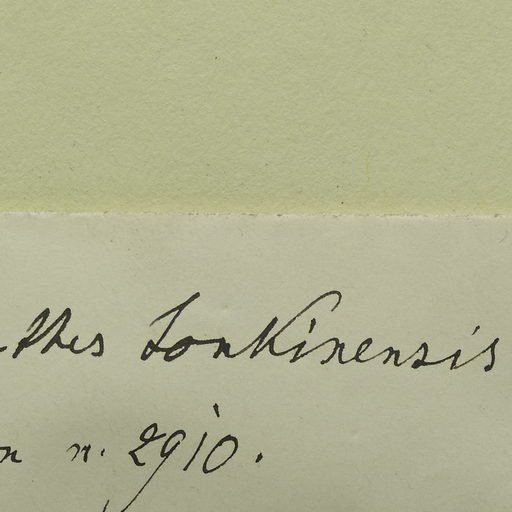 thes tonkinensis
n n. 2910.